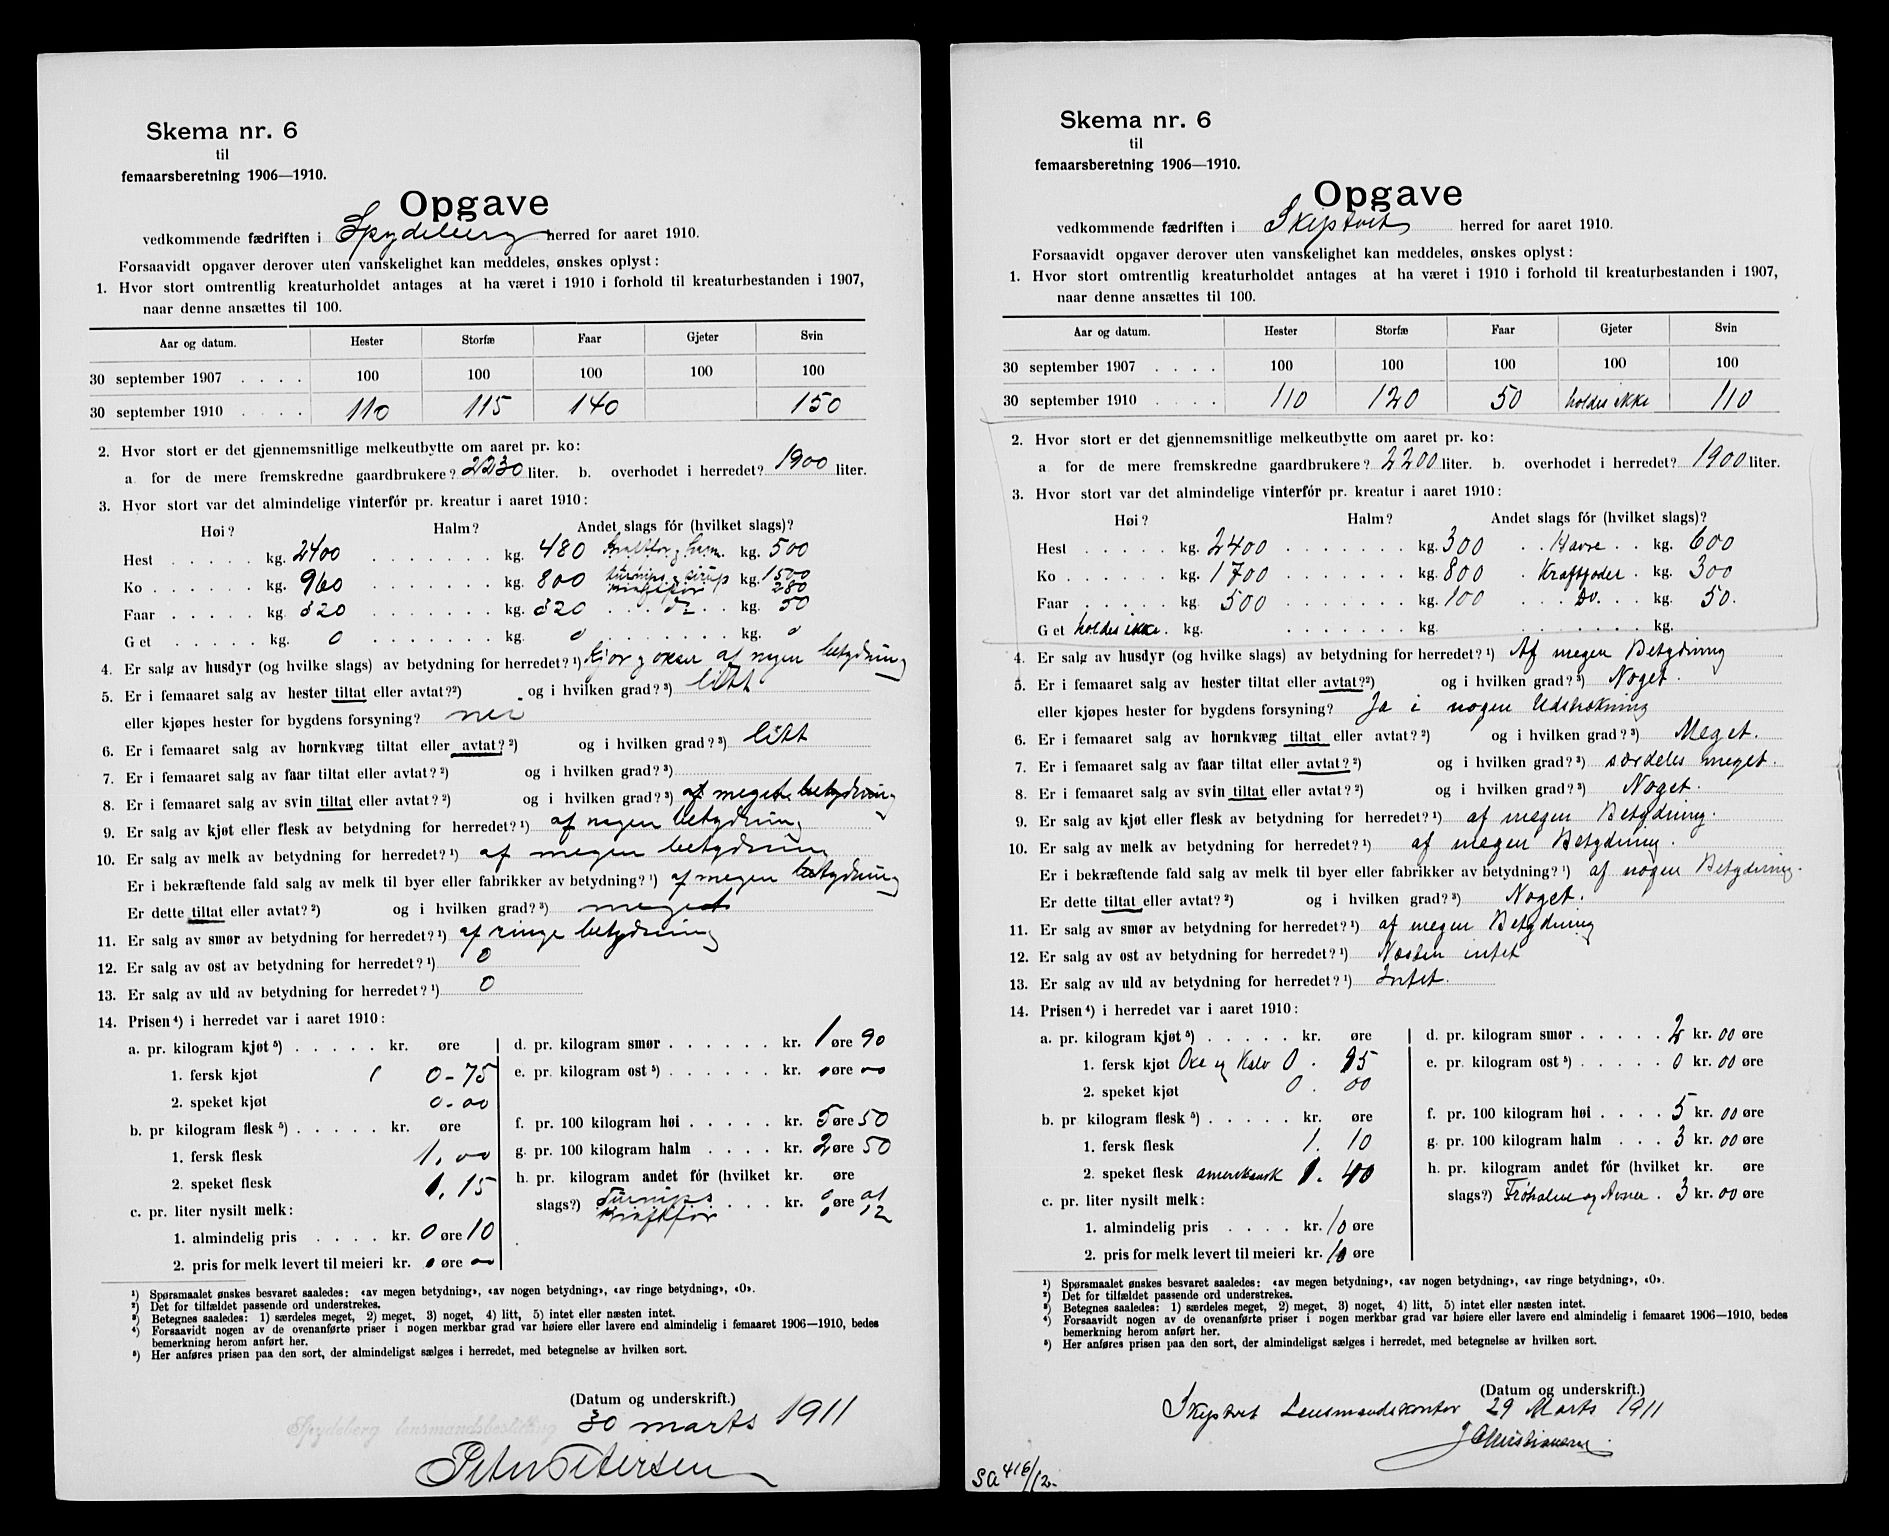 Skema nr. 6
til
femaarsberetning 1906—1910.
Opgave
vedkommende fædriften i Spydeberg herred for aaret 1910.
Forsaavidt opgaver derover uten vanskelighet kan meddeles, ønskes oplyst:
1. Hvor stort omtrentlig kreaturholdet antages at ha været i 1910 i forhold til kreaturbestanden i 1907,
naar denne ansættes til 100.
Aar og datum. Hester Storfæ Faar Gjeter Svin
30 september 1907 . . . . 100 100 100 100 100
30 september 1910 . . . . 110 115 140 150
2. Hvor stort er det gjennemsnitlige melkeutbytte om aaret pr. ko:
a for de mere fremskredne gaardbrukere? 2230 liter. b. overhodet i herredet? 1900 liter.
3. Hvor stort var det almindelige vinterfór pr. kreatur i aaret 1910:
Høi? Halm? Andet slags fór (hvilket slags)?
Hest . . . . . kg. 2400 . . . . . . . kg. 480 kg. 500
Ko . . . . . . kg. 960 . . . . . . . kg. 800 turnips kg. 1500
kraftfór 280
Faar . . . . . kg. 320 . . . . . . . kg. 320 . . . . . kg. 50
Get . . . . . kg. 0 . . . . . . . kg. 0 . . . . . . . kg. 0
4. Er salg av husdyr (og hvilke slags) av betydning for herredet?¹) kjør og okser af nogen betydning
5. Er i femaaret salg av hester tiltat eller avtat?²) og i hvilken grad?³) litt
eller kjøpes hester for bygdens forsyning? nei
6. Er i femaaret salg av hornkvæg tiltat eller avtat?²) og i hvilken grad?³) litt
7. Er i femaaret salg av faar tiltat eller avtat?²) og i hvilken grad?³)
8. Er i femaaret salg av svin tiltat eller avtat?²) og i hvilken grad?³) af meget betydning
9. Er salg av kjøt eller flesk av betydning for herredet?¹) af nogen betydning
10. Er salg av melk av betydning for herredet?¹) af megen betydning
Er i bekræftende fald salg av melk til byer eller fabrikker av betydning?¹) af megen betydning
Er dette tiltat eller avtat?²) og i hvilken grad?³) meget
11. Er salg av smør av betydning for herredet?¹) af ringe betydning
12. Er salg av ost av betydning for herredet?¹) 0
13. Er salg av uld av betydning for herredet?¹) 0
14. Prisen⁴) i herredet var i aaret 1910:
a. pr. kilogram kjøt⁵) . . . . . kr. øre
1. fersk kjøt 0-75
2. speket kjøt 0-00
b. pr kilogram flesk⁵) . . . . . kr. øre
1. fersk flesk 1.00
2. speket flesk 1.15
c. pr. liter nysilt melk:
1. almindelig pris . . . . kr. 0 øre 10
2. pris for melk levert til meieri kr. 0 øre 00
d. pr. kilogram smør . . . . . . kr. 1 øre 90
e. pr. kilogram ost⁵) . . . . . . kr. 0 øre 00
f. pr. 100 kilogram høi . . . . . kr. 5 øre 50
g. pr. 100 kilogram halm . . . . kr. 2 øre 50
h. pr. kilogram andet fór (hvilket kr. øre
slags?) Turnips . . . kr. 0 øre 01
Kraftfór 0 12
¹) Spørsmaalet ønskes besvaret saaledes: «av megen betydning», «av nogen betydning», «av ringe betydning», «0».
²) Det for tilfældet passende ord understrekes.
³) Betegnes saaledes: 1) særdeles meget, 2) meget, 3) noget, 4) litt, 5) intet eller næsten intet.
⁴) Forsaavidt nogen av de ovenanførte priser i nogen merkbar grad var høiere eller lavere end almindelig i femaaret 1906—1910, bedes
bemerkning herom anført her.
⁵) Her anføres prisen paa den sort, der almindeligst sælges i herredet, med betegnelse av hvilken sort.
(Datum og underskrift.)
Spydeberg lensmandsbestilling 30 marts 1911
Peter Petersen
Skema nr. 6
til
femaarsberetning 1906—1910.
Opgave
vedkommende fædriften i Skiptvet herred for aaret 1910.
Forsaavidt opgaver derover uten vanskelighet kan meddeles, ønskes oplyst:
1. Hvor stort omtrentlig kreaturholdet antages at ha været i 1910 i forhold til kreaturbestanden i 1907,
naar denne ansættes til 100.
Aar og datum. Hester Storfæ Faar Gjeter Svin
30 september 1907 . . . . 100 100 100 100 100
30 september 1910 . . . . 110 120 50 holdes ikke 110
2. Hvor stort er det gjennemsnitlige melkeutbytte om aaret pr. ko:
a for de mere fremskredne gaardbrukere? 2200 liter. b. overhodet i herredet? 1900 liter.
3. Hvor stort var det almindelige vinterfór pr. kreatur i aaret 1910:
Høi? Halm? Andet slags fór (hvilket slags)?
Hest . . . . . kg. 2400 . . . . . . . kg. 300 . . Havre . . kg. 600
Ko . . . . . . kg. 1700 . . . . . . . kg. 800 . Kraftfoder . kg. 300
Faar . . . . . kg. 500 . . . . . . . kg. 100 . . . Do. . . . kg. 50.
Get holdes ikke. kg. . . . . . . . kg. . . . . . . . kg.
4. Er salg av husdyr (og hvilke slags) av betydning for herredet?¹) Af megen Betydning
5. Er i femaaret salg av hester tiltat eller avtat?²) og i hvilken grad?³) Noget.
eller kjøpes hester for bygdens forsyning? Ja i nogen Udstrækning
6. Er i femaaret salg av hornkvæg tiltat eller avtat?²) og i hvilken grad?³) Meget.
7. Er i femaaret salg av faar tiltat eller avtat?²) og i hvilken grad?³) særdeles meget.
8. Er i femaaret salg av svin tiltat eller avtat?²) og i hvilken grad?³) Noget.
9. Er salg av kjøt eller flesk av betydning for herredet?¹) af megen Betydning.
10. Er salg av melk av betydning for herredet?¹) af megen Betydning.
Er i bekræftende fald salg av melk til byer eller fabrikker av betydning?¹) af nogen Betydning.
Er dette tiltat eller avtat?²) og i hvilken grad?³) Noget.
11. Er salg av smør av betydning for herredet?¹) af megen Betydning
12. Er salg av ost av betydning for herredet?¹) Næsten intet
13. Er salg av uld av betydning for herredet?¹) Intet.
14. Prisen⁴) i herredet var i aaret 1910:
a. pr. kilogram kjøt⁵) . . . . . kr. øre
1. fersk kjøt Oxe og Kalv 0.
2. speket kjøt 0. 00
b. pr kilogram flesk⁵) . . . . . kr. øre
1. fersk flesk 1. 10
2. speket flesk amerikansk 1. 40
c. pr. liter nysilt melk:
1. almindelig pris . . . . kr. 10 øre
2. pris for melk levert til meieri kr. 10 øre
d. pr. kilogram smør . . . . . 2 kr. 00 øre
e. pr. kilogram ost⁵) . . . . . 0 kr. 00 øre
f. pr. 100 kilogram høi . . . . 5 kr. 00 øre
g. pr. 100 kilogram halm . . . 3 kr. 00 øre
h. pr. kilogram andet fór (hvilket kr. øre
slags?) Frøhalm og Avner . 3 kr. 00 øre
¹) Spørsmaalet ønskes besvaret saaledes: «av megen betydning», «av nogen betydning», «av ringe betydning», «0».
²) Det for tilfældet passende ord understrekes.
³) Betegnes saaledes: 1) særdeles meget, 2) meget, 3) noget, 4) litt, 5) intet eller næsten intet.
⁴) Forsaavidt nogen av de ovenanførte priser i nogen merkbar grad var høiere eller lavere end almindelig i femaaret 1906—1910, bedes
bemerkning herom anført her.
⁵) Her anføres prisen paa den sort, der almindeligst sælges i herredet, med betegnelse av hvilken sort.
(Datum og underskrift.)
Skiptvet Lensmandskontor 29 Marts 1911
J Christiansen.
SA 416/12.